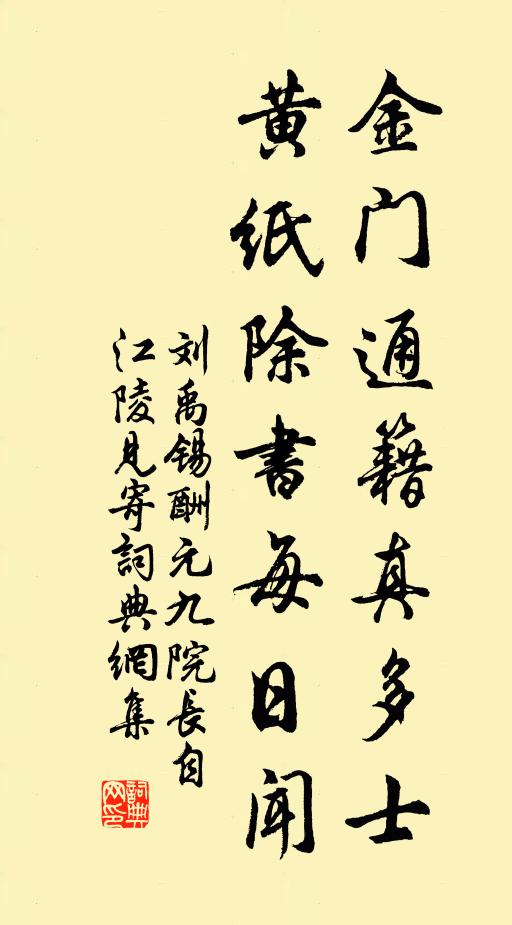 金门通籍真多士
黄纸除书每日闻
刘禹锡酬元九院長自
江陵見寄詞典網集
詞典网印